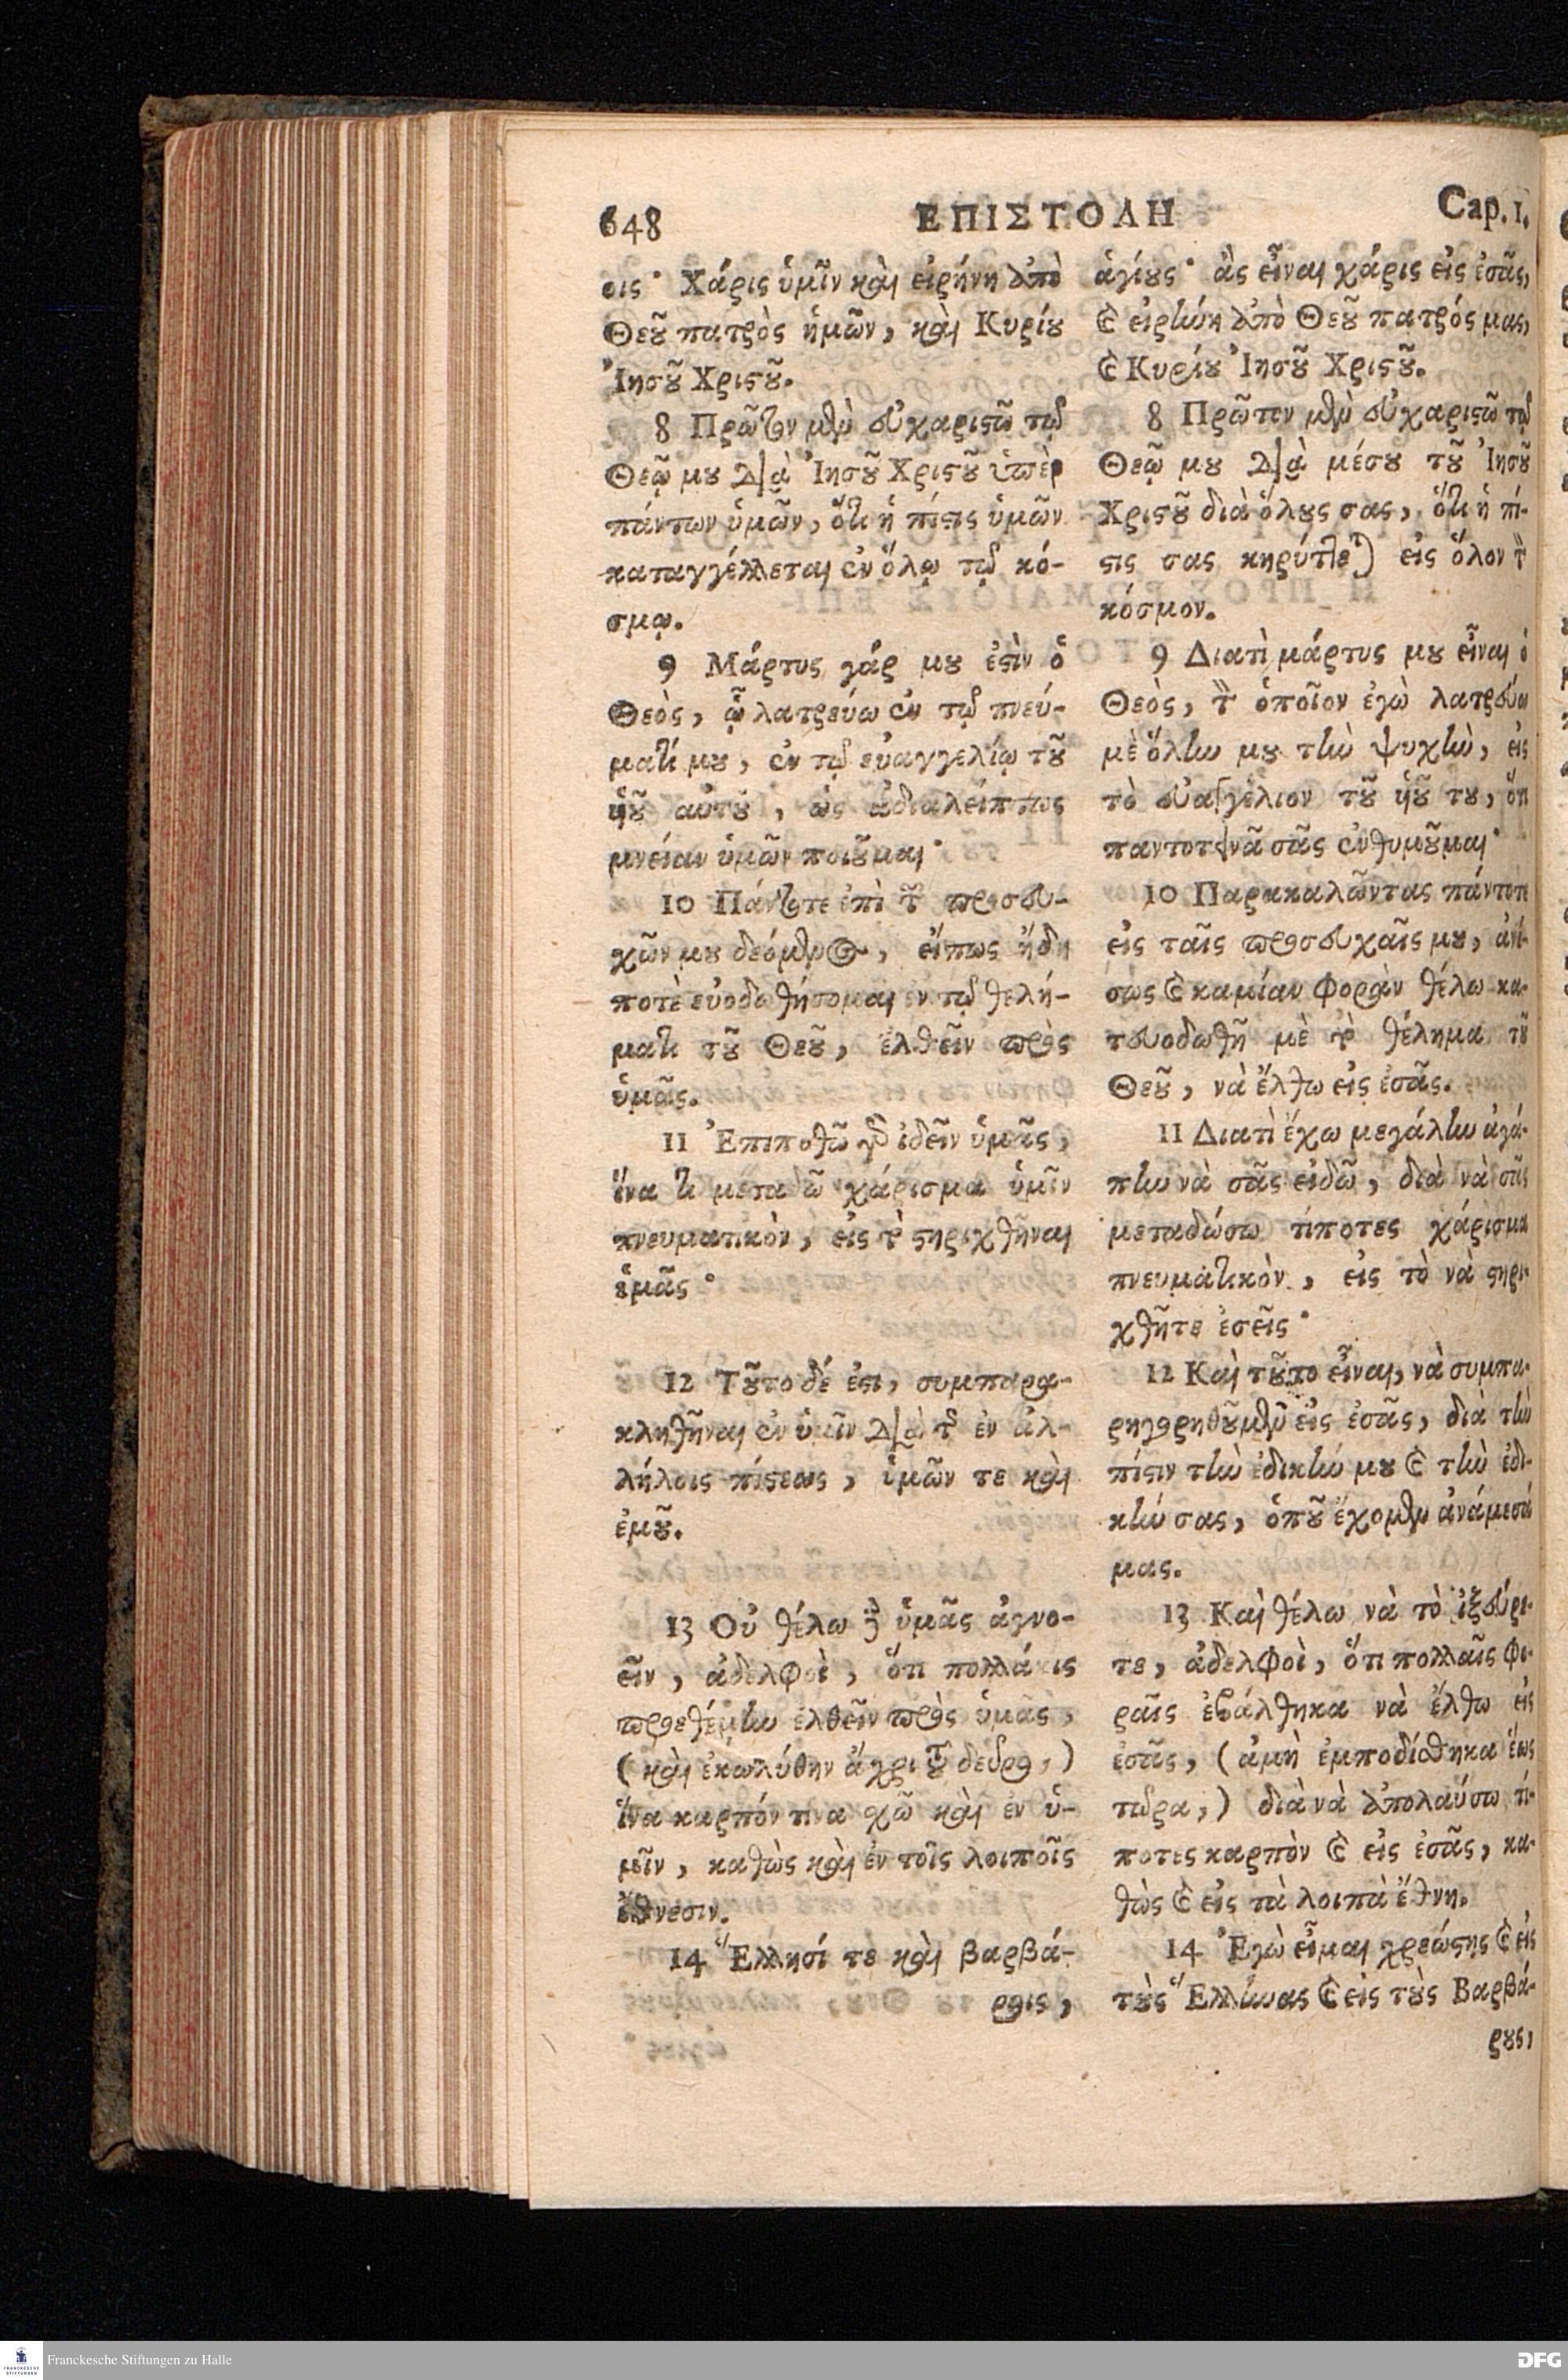 648
ΕΠΙΣΤΟΛΗ
Cap. 1.
οις· Χάρις ὑμῖν καὶ εἰρήνη ἀπὸ
Θεοῦ πατρὸς ἡμῶν, καὶ Κυρίου
Ἰησοῦ Χριστοῦ.
8 Πρῶτον μὲν εὐχαριστῶ τῷ
Θεῷ μου διὰ Ἰησοῦ Χριστοῦ ὑπὲρ
πάντων ὑμῶν, ὅτι ἡ πίστις ὑμῶν
καταγγέλλεται ἐν ὅλῳ τῷ κό-
σμῳ.
9 Μάρτυς γάρ μου ἐστὶν ὁ
Θεὸς, ᾧ λατρεύω ἐν τῷ πνεύ-
ματί μου, ἐν τῷ εὐαγγελίῳ τοῦ
ὑιοῦ αὐτοῦ, ὡς ἀδιαλείπτως
μνείαν ὑμῶν ποιοῦμαι·
10 Πάντοτε ἐπὶ τῶν προσευ-
χῶν μου δεόμενος, εἴπως ἤδη
ποτὲ εὐοδωθήσομαι ἐν τῷ θελή-
ματι τοῦ Θεοῦ, ἐλθεῖν πρὸς
ὑμᾶς.
11 Ἐπιποθῶ γὰρ ἰδεῖν ὑμᾶς,
ἵνα τι μεταδῶ χάρισμα ὑμῖν
πνευματικὸν, εἰς τὸ στηριχθῆναι
ὑμᾶς·
12 Τοῦτο δέ ἐστι, συμπαρα-
κληθῆναι ἐν ὑμῖν διὰ τῆς ἐν ἀλ-
λήλοις πίστεως, ὑμῶν τε καὶ
ἐμοῦ.
13 Οὐ θέλω δὲ ὑμᾶς ἀγνο-
εῖν, ἀδελφοὶ, ὅτι πολλάκις
προεθέμην ἐλθεῖν πρὸς ὑμᾶς,
(καὶ ἐκωλύθην ἄχρι τοῦ δεῦρο,)
ἵνα καρπόν τινα σχῶ καὶ ἐν ὑ-
μῖν, καθὼς καὶ ἐν τοῖς λοιποῖς
ἔθνεσιν.
14 Ἕλλησί τε καὶ βαρβά-
ροις,
ἁγίους· ἂς εἶναι χάρις εἰς ἐσᾶς,
καὶ εἰρήνη ἀπὸ Θεοῦ πατρός μας,
καὶ Κυρίου Ἰησοῦ Χριστοῦ.
8 Πρῶτον μὲν εὐχαριστῶ τῷ
Θεῷ μου διὰ μέσου τοῦ Ἰησοῦ
Χριστοῦ διὰ ὅλους σας, ὅτι ἡ πί-
στις σας κηρύττεται εἰς ὅλον τὸν
κόσμον.
9 Διατὶ μάρτυς μου εἶναι ὁ
Θεὸς, τὸν ὁποῖον ἐγὼ λατρεύω
μὲ ὅλην μου τὴν ψυχὴν, εἰς
τὸ εὐαγγέλιον τοῦ ὑιοῦ του, ὅτι
παντοτεινᾶ σᾶς ἐνθυμοῦμαι·
10 Παρακαλῶντας πάντοτε
εἰς ταῖς προσευχαῖς μου, ἀνί-
σως καὶ καμίαν φορὰν θέλω κα-
τευοδωθῆ μὲ τὸ θέλημα τοῦ
Θεοῦ, νὰ ἔλθω εἰς ἐσᾶς.
11 Διατὶ ἔχω μεγάλην ἀγά-
πην νὰ σᾶς εἰδῶ, διὰ νὰ σᾶς
μεταδώσω τίποτες χάρισμα
πνευματικὸν, εἰς τὸ νὰ στηρι-
χθῆτε ἐσεῖς·
12 Καὶ τοῦτο εἶναι, νὰ συμπα-
ρηγορηθοῦμεν εἰς ἐσᾶς, διὰ τὴν
πίστιν τὴν ἐδικήν μου καὶ τὴν ἐδι-
κήν σας, ὁποῦ ἔχομεν ἀνάμεσά
μας.
13 Καὶ θέλω νὰ τὸ ἰξεύρε-
τε, ἀδελφοὶ, ὅτι πολλαῖς φο-
ραῖς ἐβάλθηκα νὰ ἔλθω εἰς
ἐσᾶς, (ἀμὴ ἐμποδίσθηκα ἕως
τώρα,) διὰ νὰ ἀπολαύσω τί-
ποτες καρπὸν καὶ εἰς ἐσᾶς, κα-
θὼς καὶ εἰς τὰ λοιπὰ ἔθνη.
14 Ἐγὼ εἶμαι χρεώστης καὶ εἰς
τοὺς Ἕλληνας καὶ εἰς τοὺς Βαρβά-
ρους,
Franckesche Stiftungen zu Halle
DFG